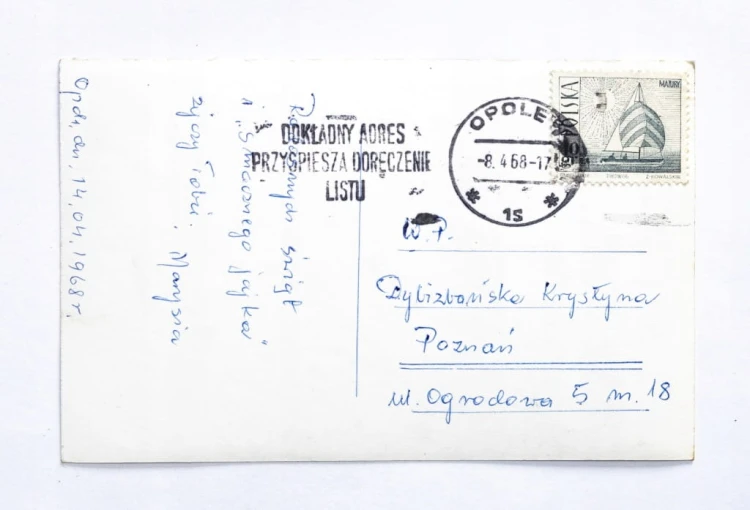 Opole, dn. 14.04.1968 r.
Radosnych Świąt
i „Smacznego Jajka”
życzy Tobie
Marysia
DOKŁADNY ADRES
PRZYŚPIESZA DORĘCZENIE
LISTU
OPOLE
-8.4.68-17
1S
POLSKA
MAZURY
W.P.
Dylizbańska Krystyna
Poznań
ul. Ogrodowa 5 m. 18